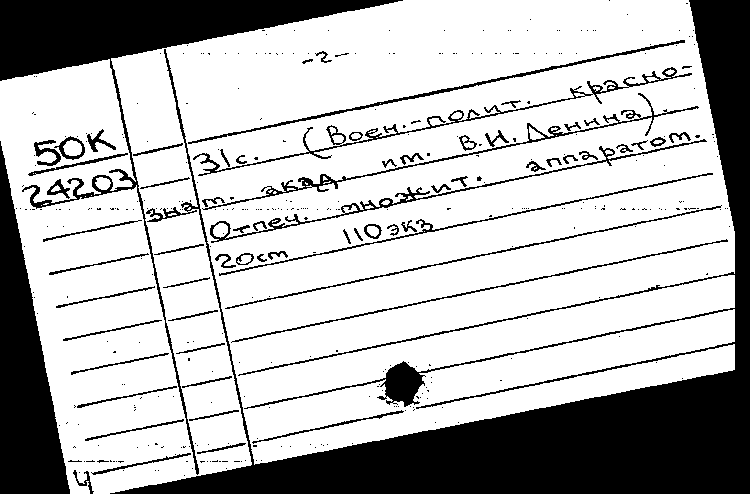 -2-
50К
24203
31с. (Воен.-полит. красно-
знам. акад. им. В.И. Ленина).
Отпеч. множит. аппаратом.
20см 110экз
Ч